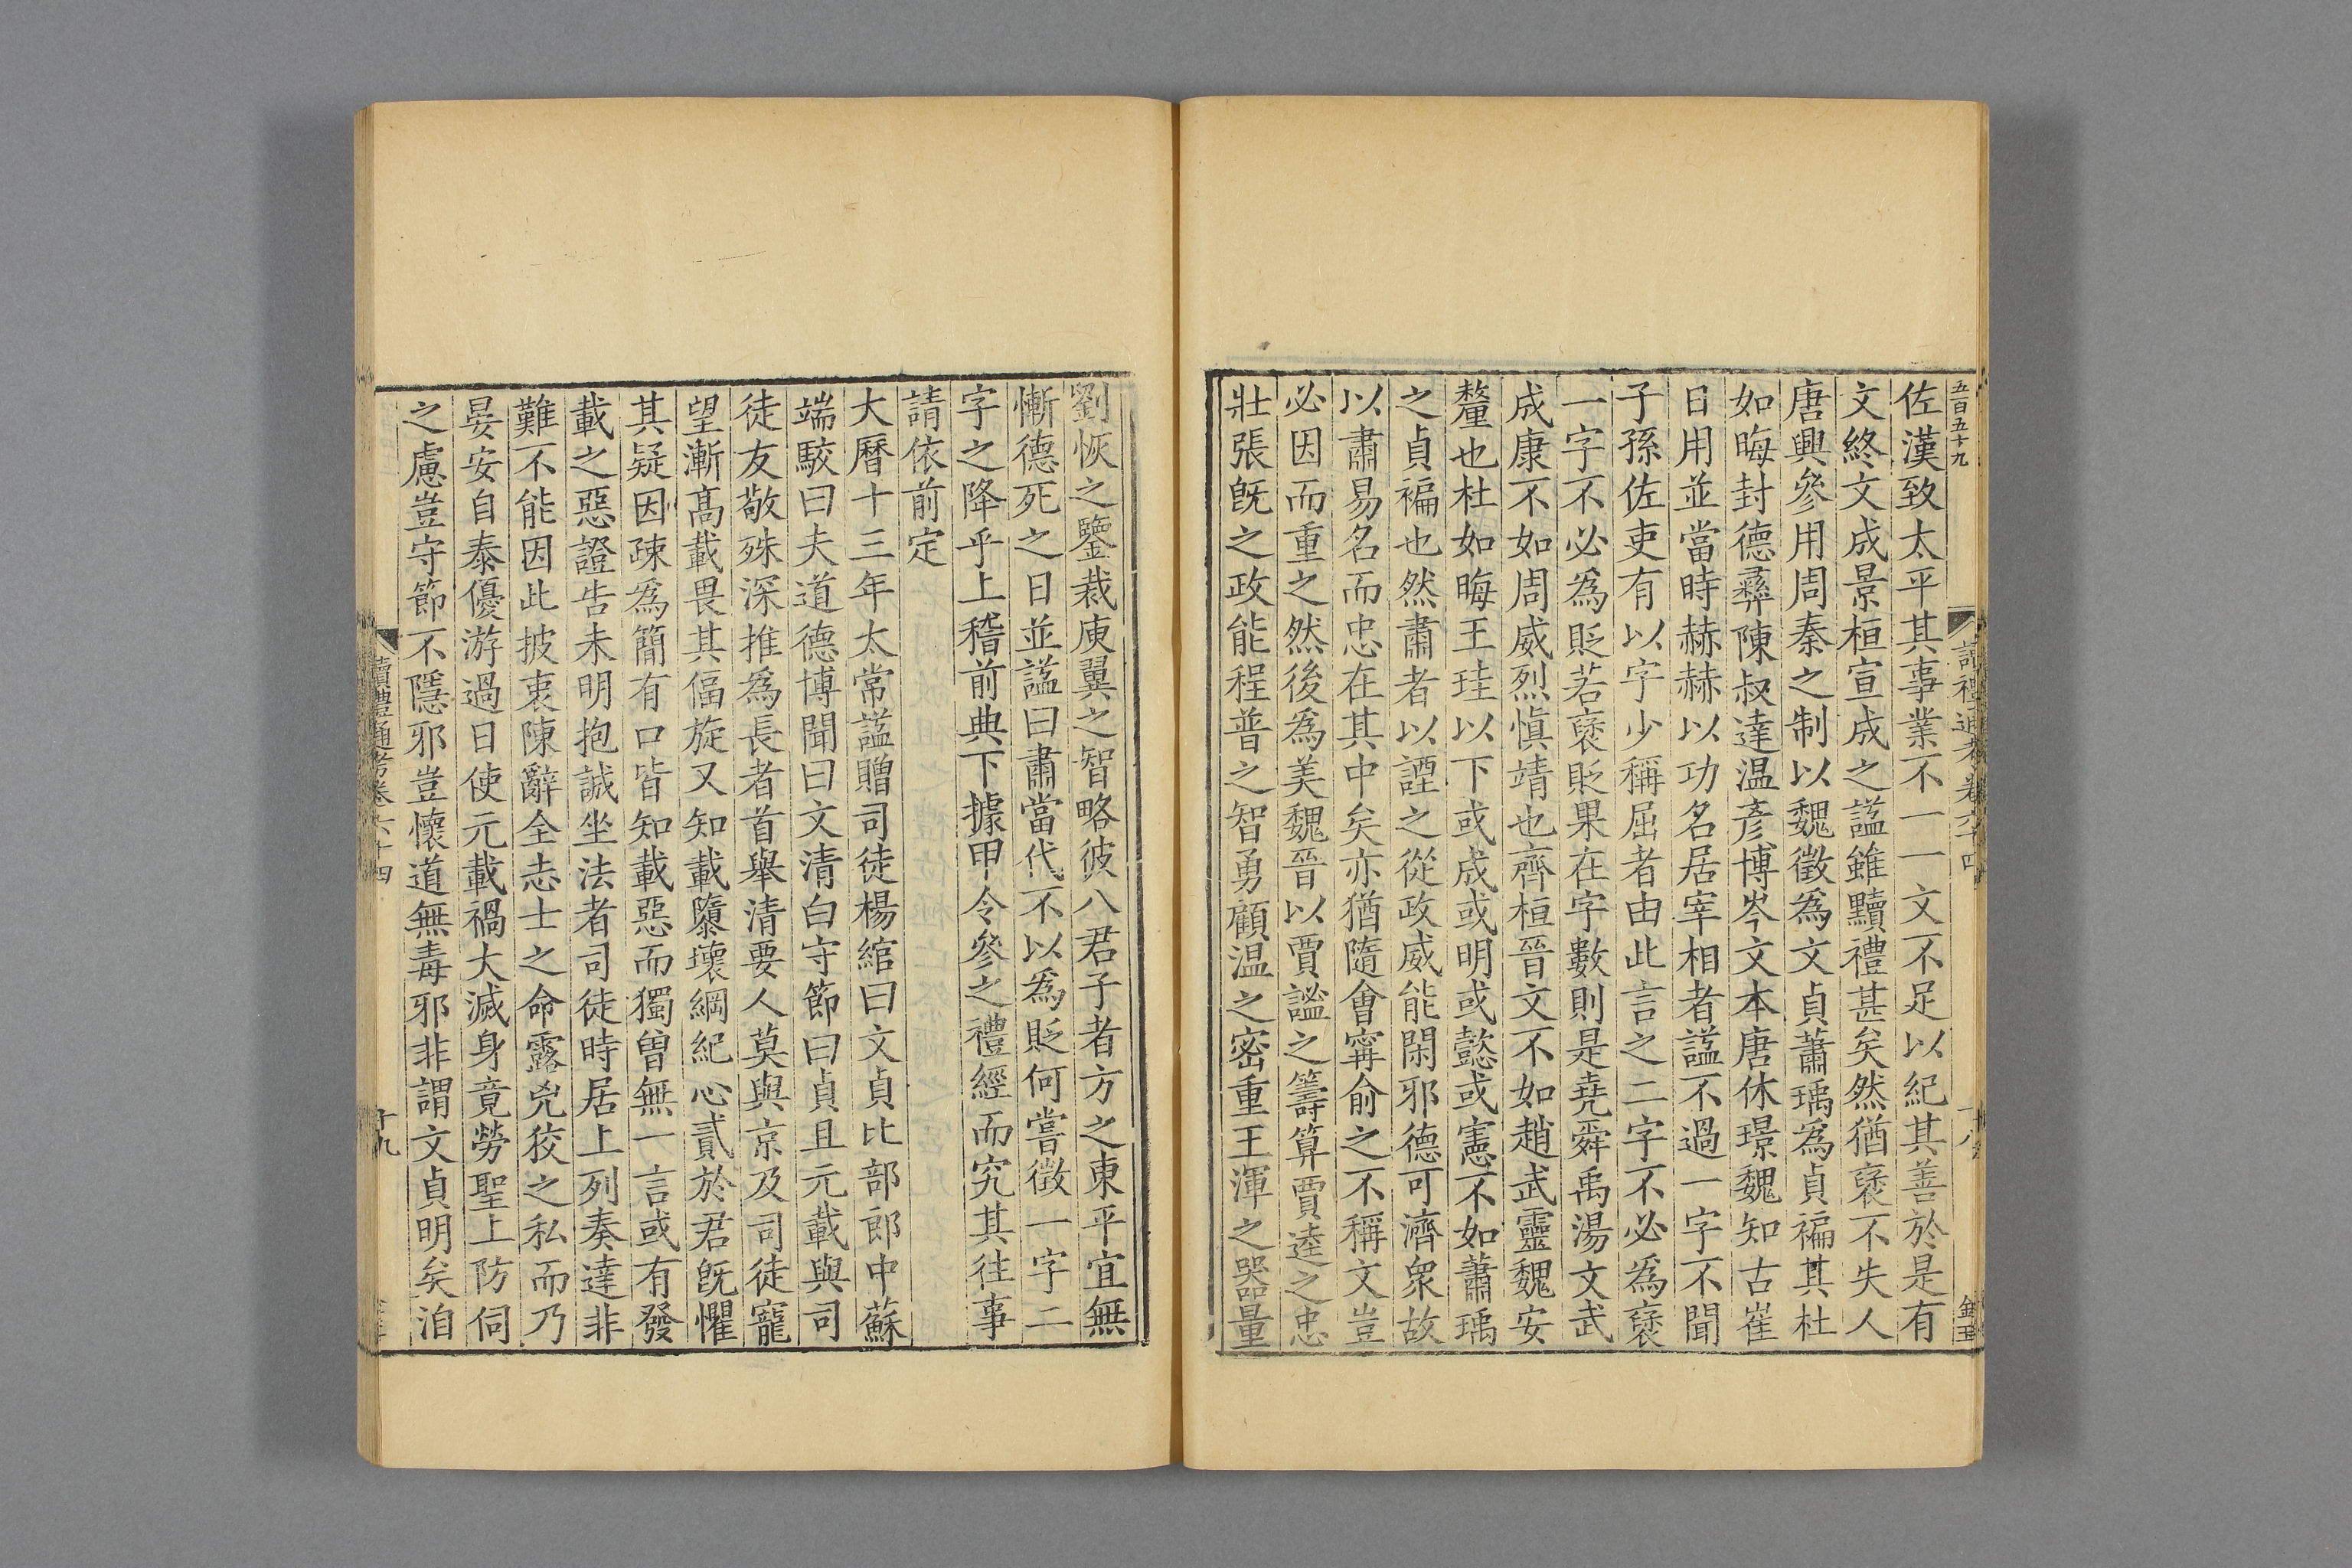 五百五十九
讀禮通考卷六十四
十八
佐漢致太平其事業不一一文不足以紀其善於是有
文終文成景桓宣成之諡雖黷禮甚矣然猶褒不失人
唐興參用周秦之制以魏徵為文貞蕭瑀為貞褊其杜
如晦封德彝陳叔達温彥博岑文本唐休璟魏知古崔
日用並當時赫赫以功名居宰相者諡不過一字不聞
子孫佐吏有以字少稱屈者由此言之二字不必為褒
一字不必為貶若褒貶果在字數則是堯舜禹湯文武
成康不如周威烈愼靖也齊桓晉文不如趙武靈魏安
釐也杜如晦王珪以下或成或明或懿或憲不如蕭瑀
之貞褊也然肅者以諲之從政威能閑邪德可濟衆故
以肅易名而忠在其中矣亦猶隨會甯俞之不稱文豈
必因而重之然後為美魏晉以賈詡之籌算賈逵之忠
壯張旣之政能程普之智勇顧温之密重王渾之器量
劉恢之鑒裁庾翼之智略彼八君子者方之東平宜無
慚德死之日並諡曰肅當代不以為貶何嘗徵一字二
字之降乎上稽前典下據甲令參之禮經而究其往事
請依前定
大曆十三年太常諡贈司徒楊綰曰文貞比部郎中蘇
端駮曰夫道德博聞曰文清白守節曰貞且元載與司
徒友敬殊深推為長者首舉清要人莫與京及司徒寵
望漸髙載畏其偪旋又知載隳壞綱紀心貳於君旣懼
其疑因疎為簡有口皆知載惡而獨曾無一言或有發
載之惡證告未明抱誠坐法者司徒時居上列奏達非
難不能因此披衷陳辭全志士之命露兇狡之私而乃
晏安自泰優游過日使元載禍大滅身竟勞聖上防伺
之慮豈守節不隱邪豈懷道無毒邪非謂文貞明矣洎
讀禮通考卷六十四
十九